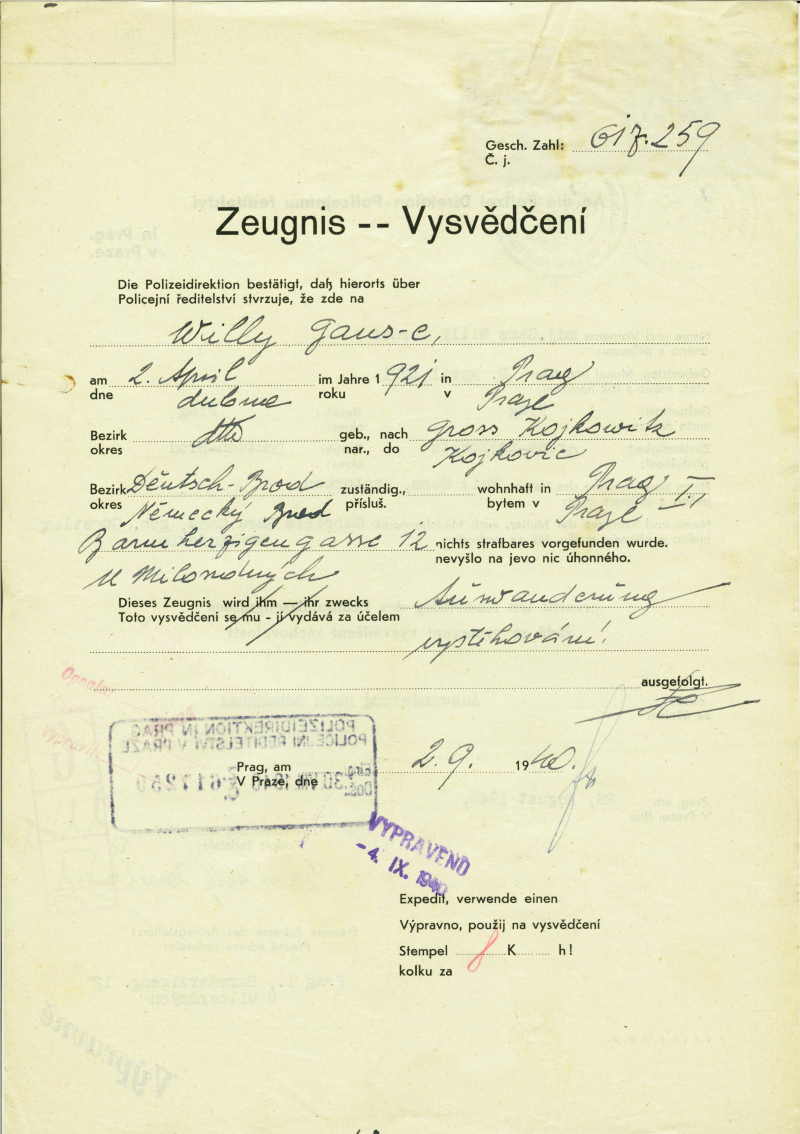 Gesch. Zahl: 617.259
Č. j.
Zeugnis -- Vysvědčení
Die Polizeidirektion bestätigt, daß hierorts über
Policejní ředitelství stvrzuje, že zde na
Willy Gans-e,
am 2. April im Jahre 1921 in Prag
dne dubna roku v Praze
Bezirk dtto geb., nach Gross Kojkowitz
okres nar., do Kojkovic
Bezirk Deutsch-Brod zuständig., wohnhaft in Prag I.,
okres Německý Brod přísluš. bytem v Praze
Barmherzigengasse 12 nichts strafbares vorgefunden wurde.
U Milosrdných nevyšlo na jevo nic úhonného.
Dieses Zeugnis wird ihm — ihr zwecks Auswanderung
Toto vysvědčení se mu - jí vydává za účelem vystěhování!
ausgefolgt.
POLIZEIDIREKTION IN PRAG
POLICEJNÍ ŘEDITELSTVÍ V PRAZE
Prag, am 2. 9. 1940.
V Praze, dne
VYPRAVENO
-4. IX. 1940
Expedit, verwende einen
Výpravno, použij na vysvědčení
Stempel 8 K h!
kolku za
Výpravně